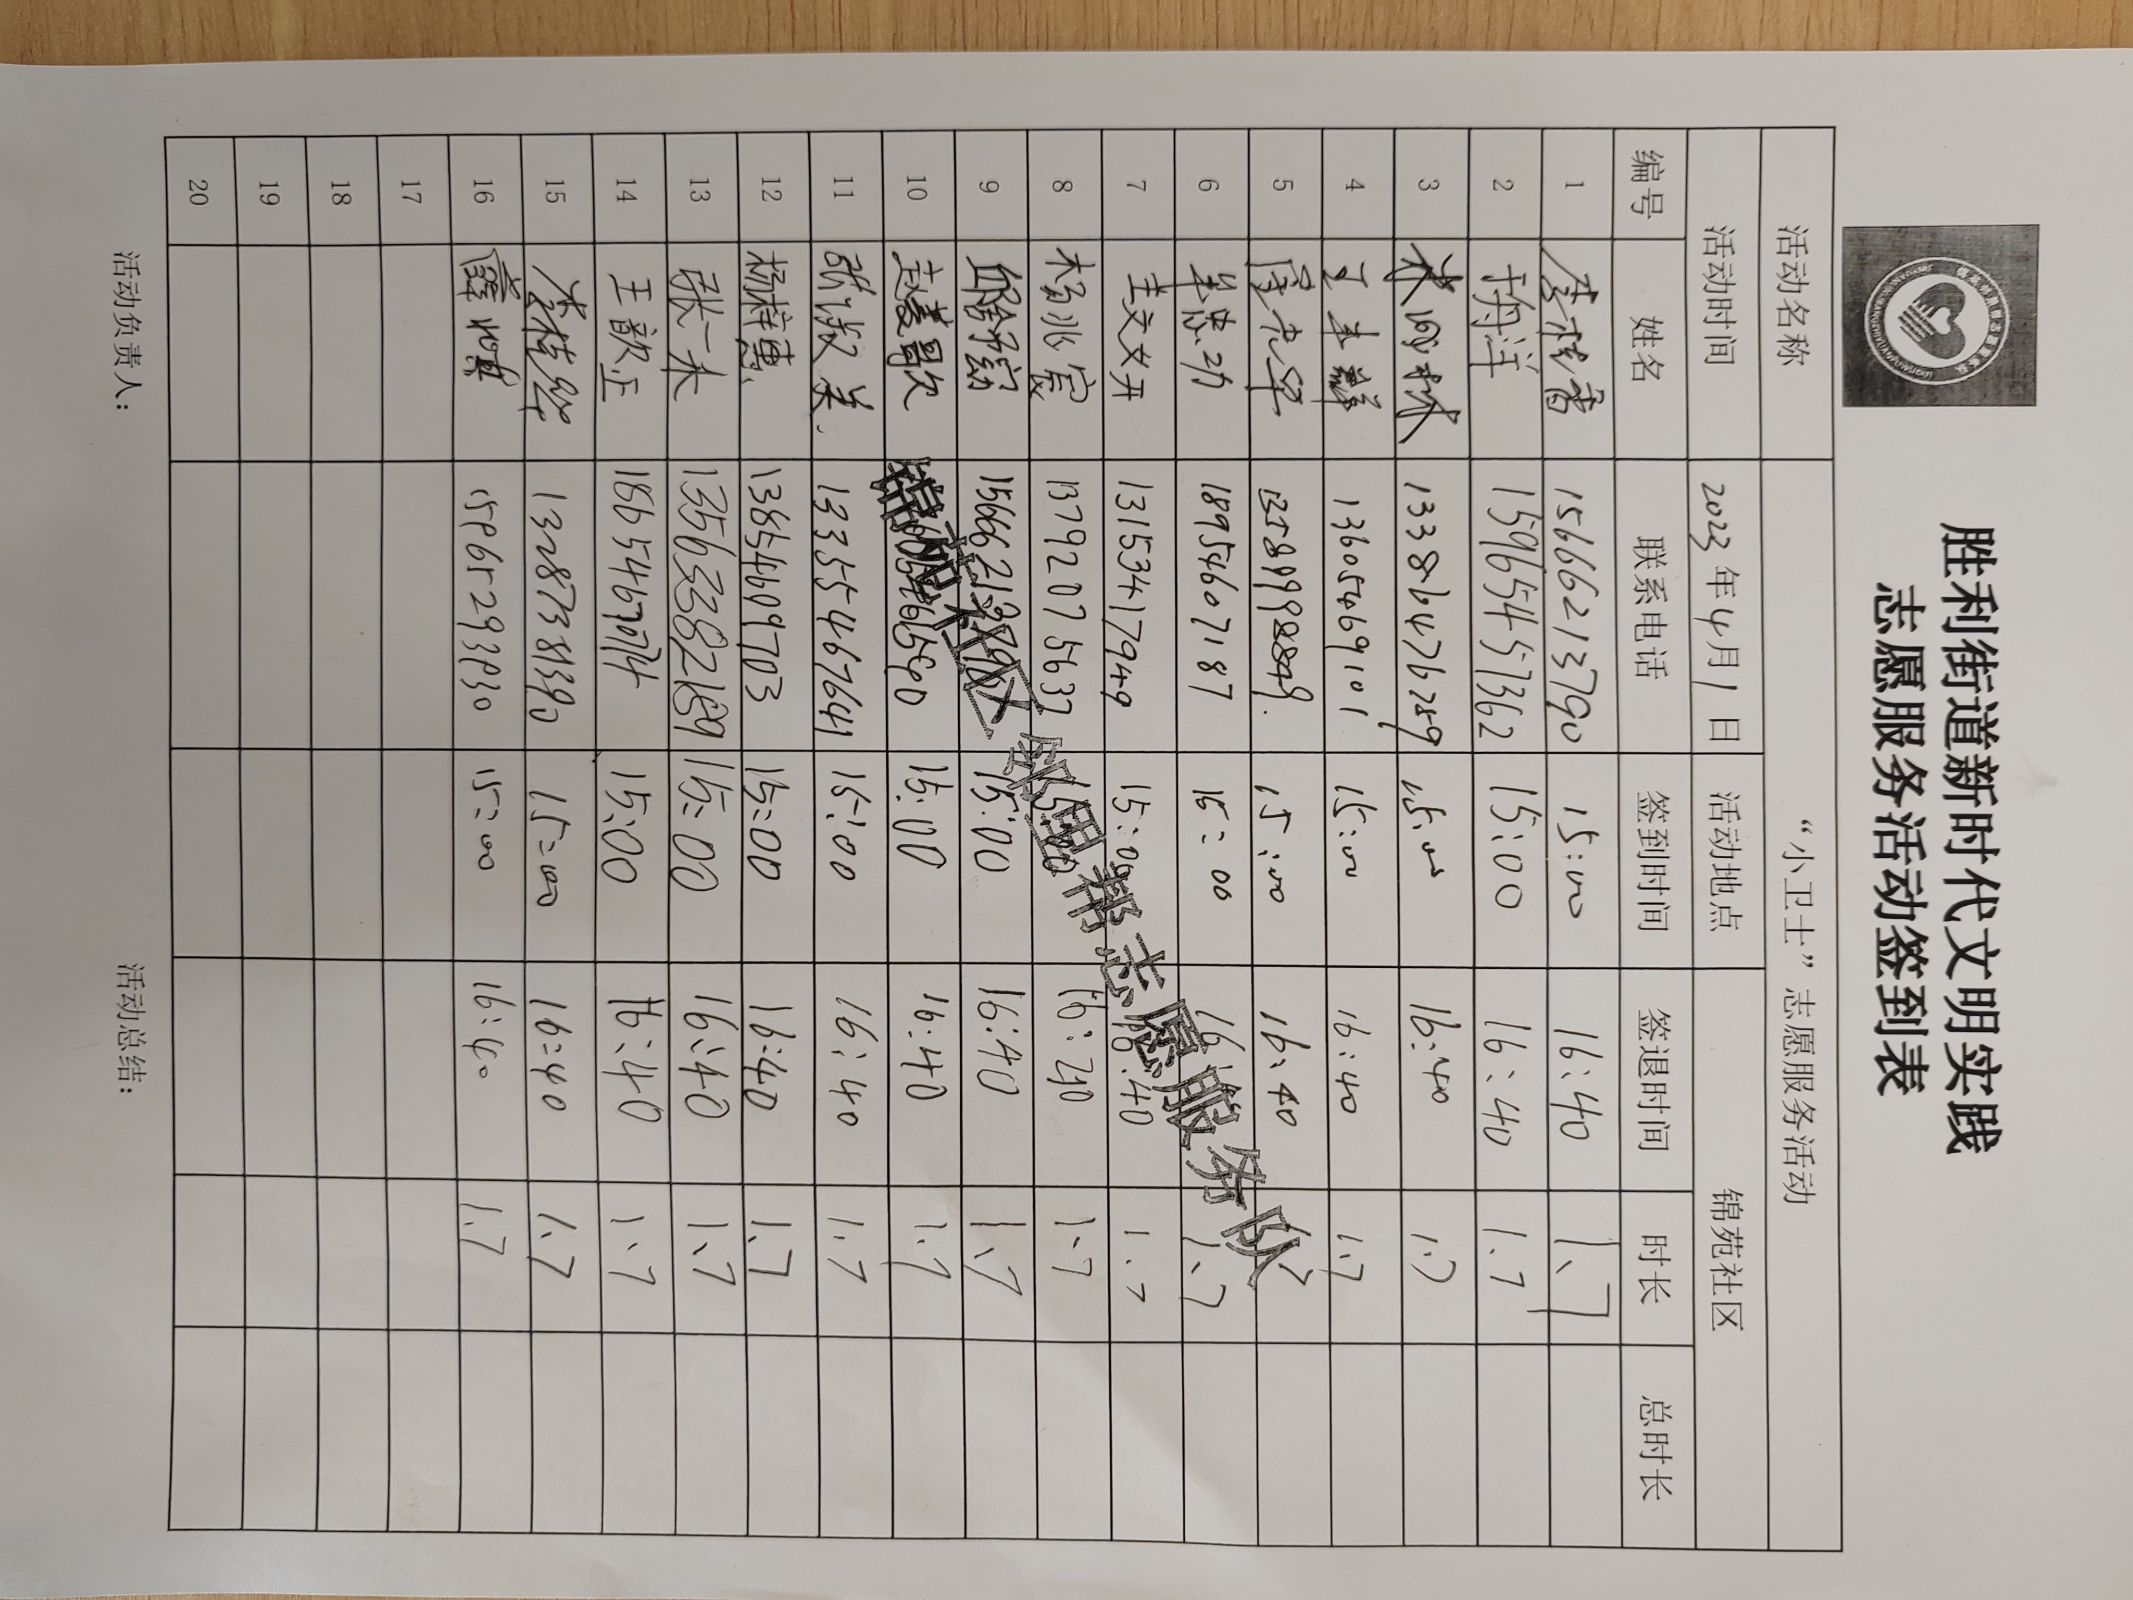 胜利街道新时代文明实践
志愿服务活动签到表
活动名称 “小卫士”志愿服务活动
活动时间 2023年4月1日 活动地点 锦苑社区
编号 姓名 联系电话 签到时间 签退时间 时长 总时长
1 15666213790 15:00 16:40 1.7
2 15965451362 15:00 16:40 1.7
3 13386476289 15:00 16:40 1.7
4 13605469101 15:00 16:40 1.7
5 15:00 16:40
6 18954607187 15:00 16: 1.7
7 王文文 13153417949 15:00 16:40 1.7
8 杨兆宸 13792075637 15:00 16:40 1.7
9 15:00 16:40 1.7
10 15:00 16:40 1.7
11 张淑美 13355467641 15:00 16:40 1.7
12 杨梓惠 13854609703 15:00 16:40 1.7
13 张一禾 15:00 16:40 1.7
14 王歆正 15:00 16:40 1.7
15 13287338390 15:00 16:40 1.7
16 15865293930 15:00 16:40 1.7
17
18
19
20
锦苑社区邻里帮志愿服务队
活动负责人： 活动总结：